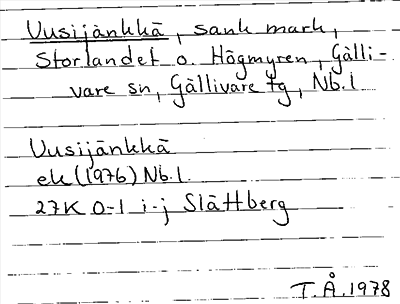 Uusijänkkä, sank mark,
Storlandet o. Högmyren, Gälli-
vare sn, Gällivare tg, Nb.l.
Uusijänkkä
ek (1976) Nb.l.
27K 0-1 i-j Slättberg
T.Å. 1978